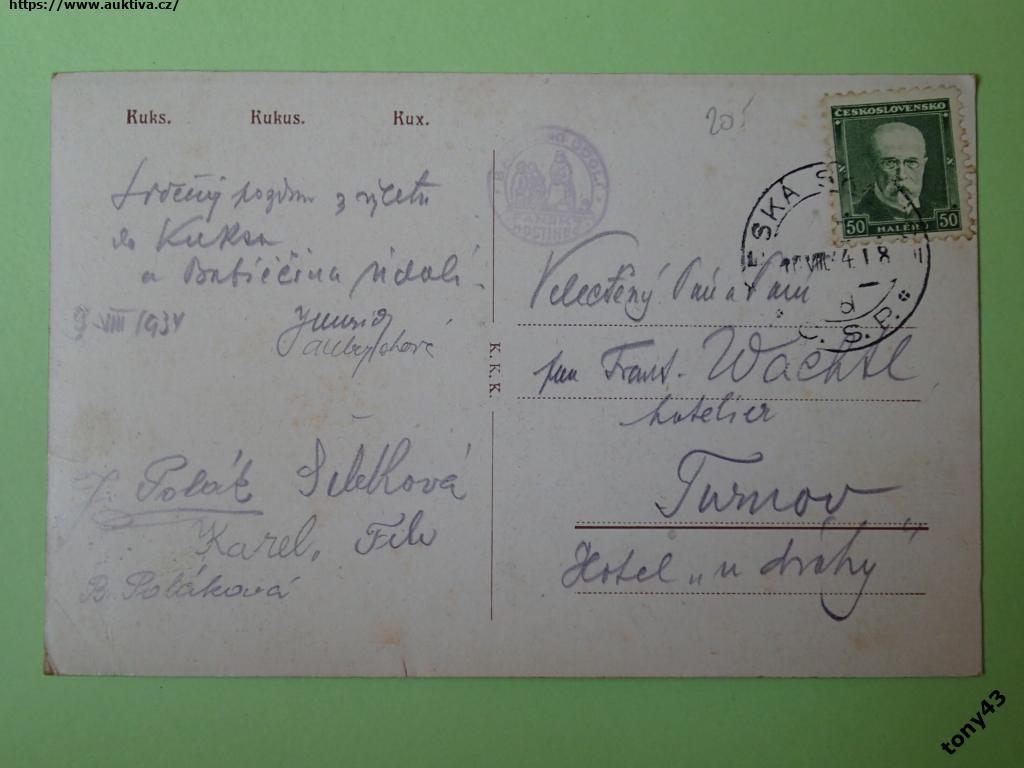 https://www.auktiva.cz/
Kuks. Kukus. Kux.
205
Srdečný pozdrav z výletu
do Kuksu
a Babiččina údolí.
9 VIII 1934
J. Polák
Karel. Fila
B. Poláková
K. K. K.
PANSKÝ
HOSTINEC
ČESKOSLOVENSKO
50 HALÉŘŮ 50
ČESKÁ SKALICE
Č.S.P.
Velectěný Pán a Paní
pan Frant. Wachtl
hotelier
Turnov
Hotel „u dráhy"
tony43